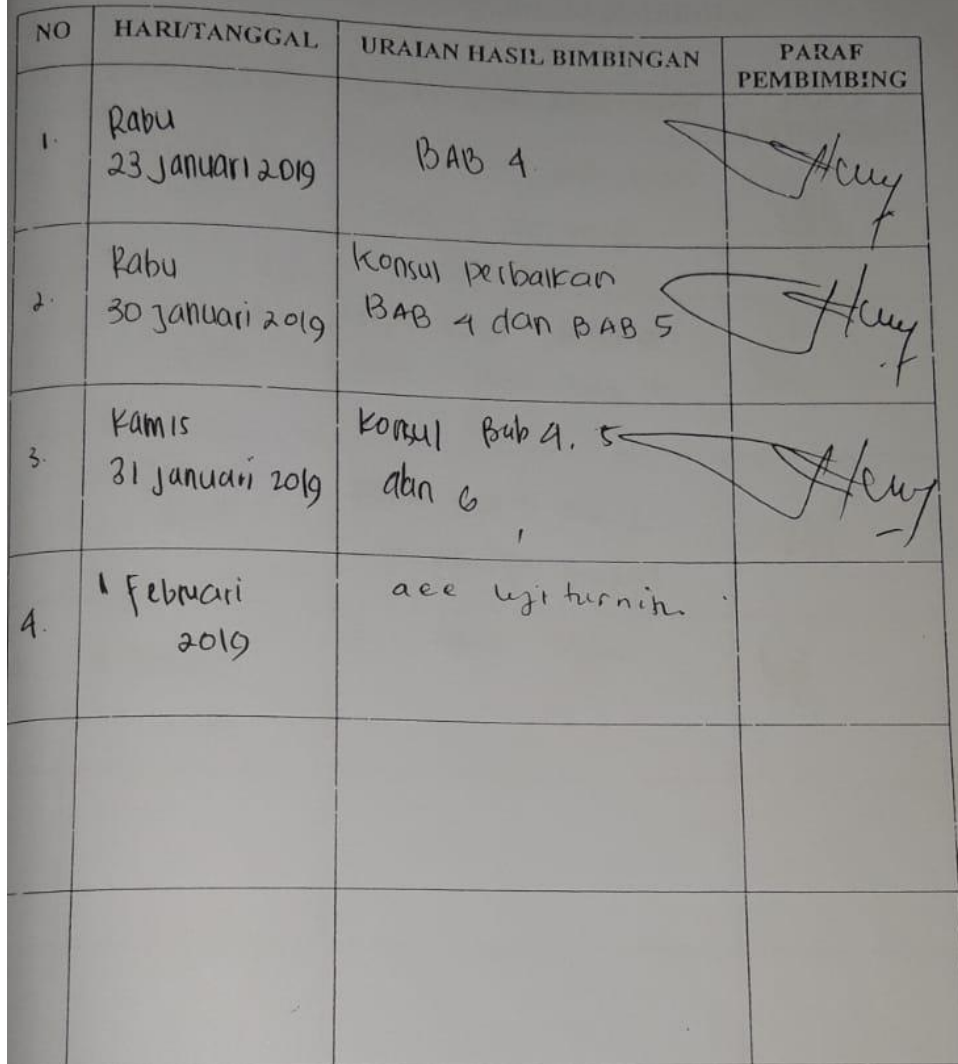 NO HARI/TANGGAL URAIAN HASIL BIMBINGAN PARAF
PEMBIMBING
1. Rabu
23 Januari 2019
BAB 4
2. Rabu
30 Januari 2019
Konsul perbaikan
BAB 4 dan BAB 5
3. Kamis
31 Januari 2019
Konsul Bab 4, 5
dan 6
4. 1 Februari
2019
acc uji turnitin